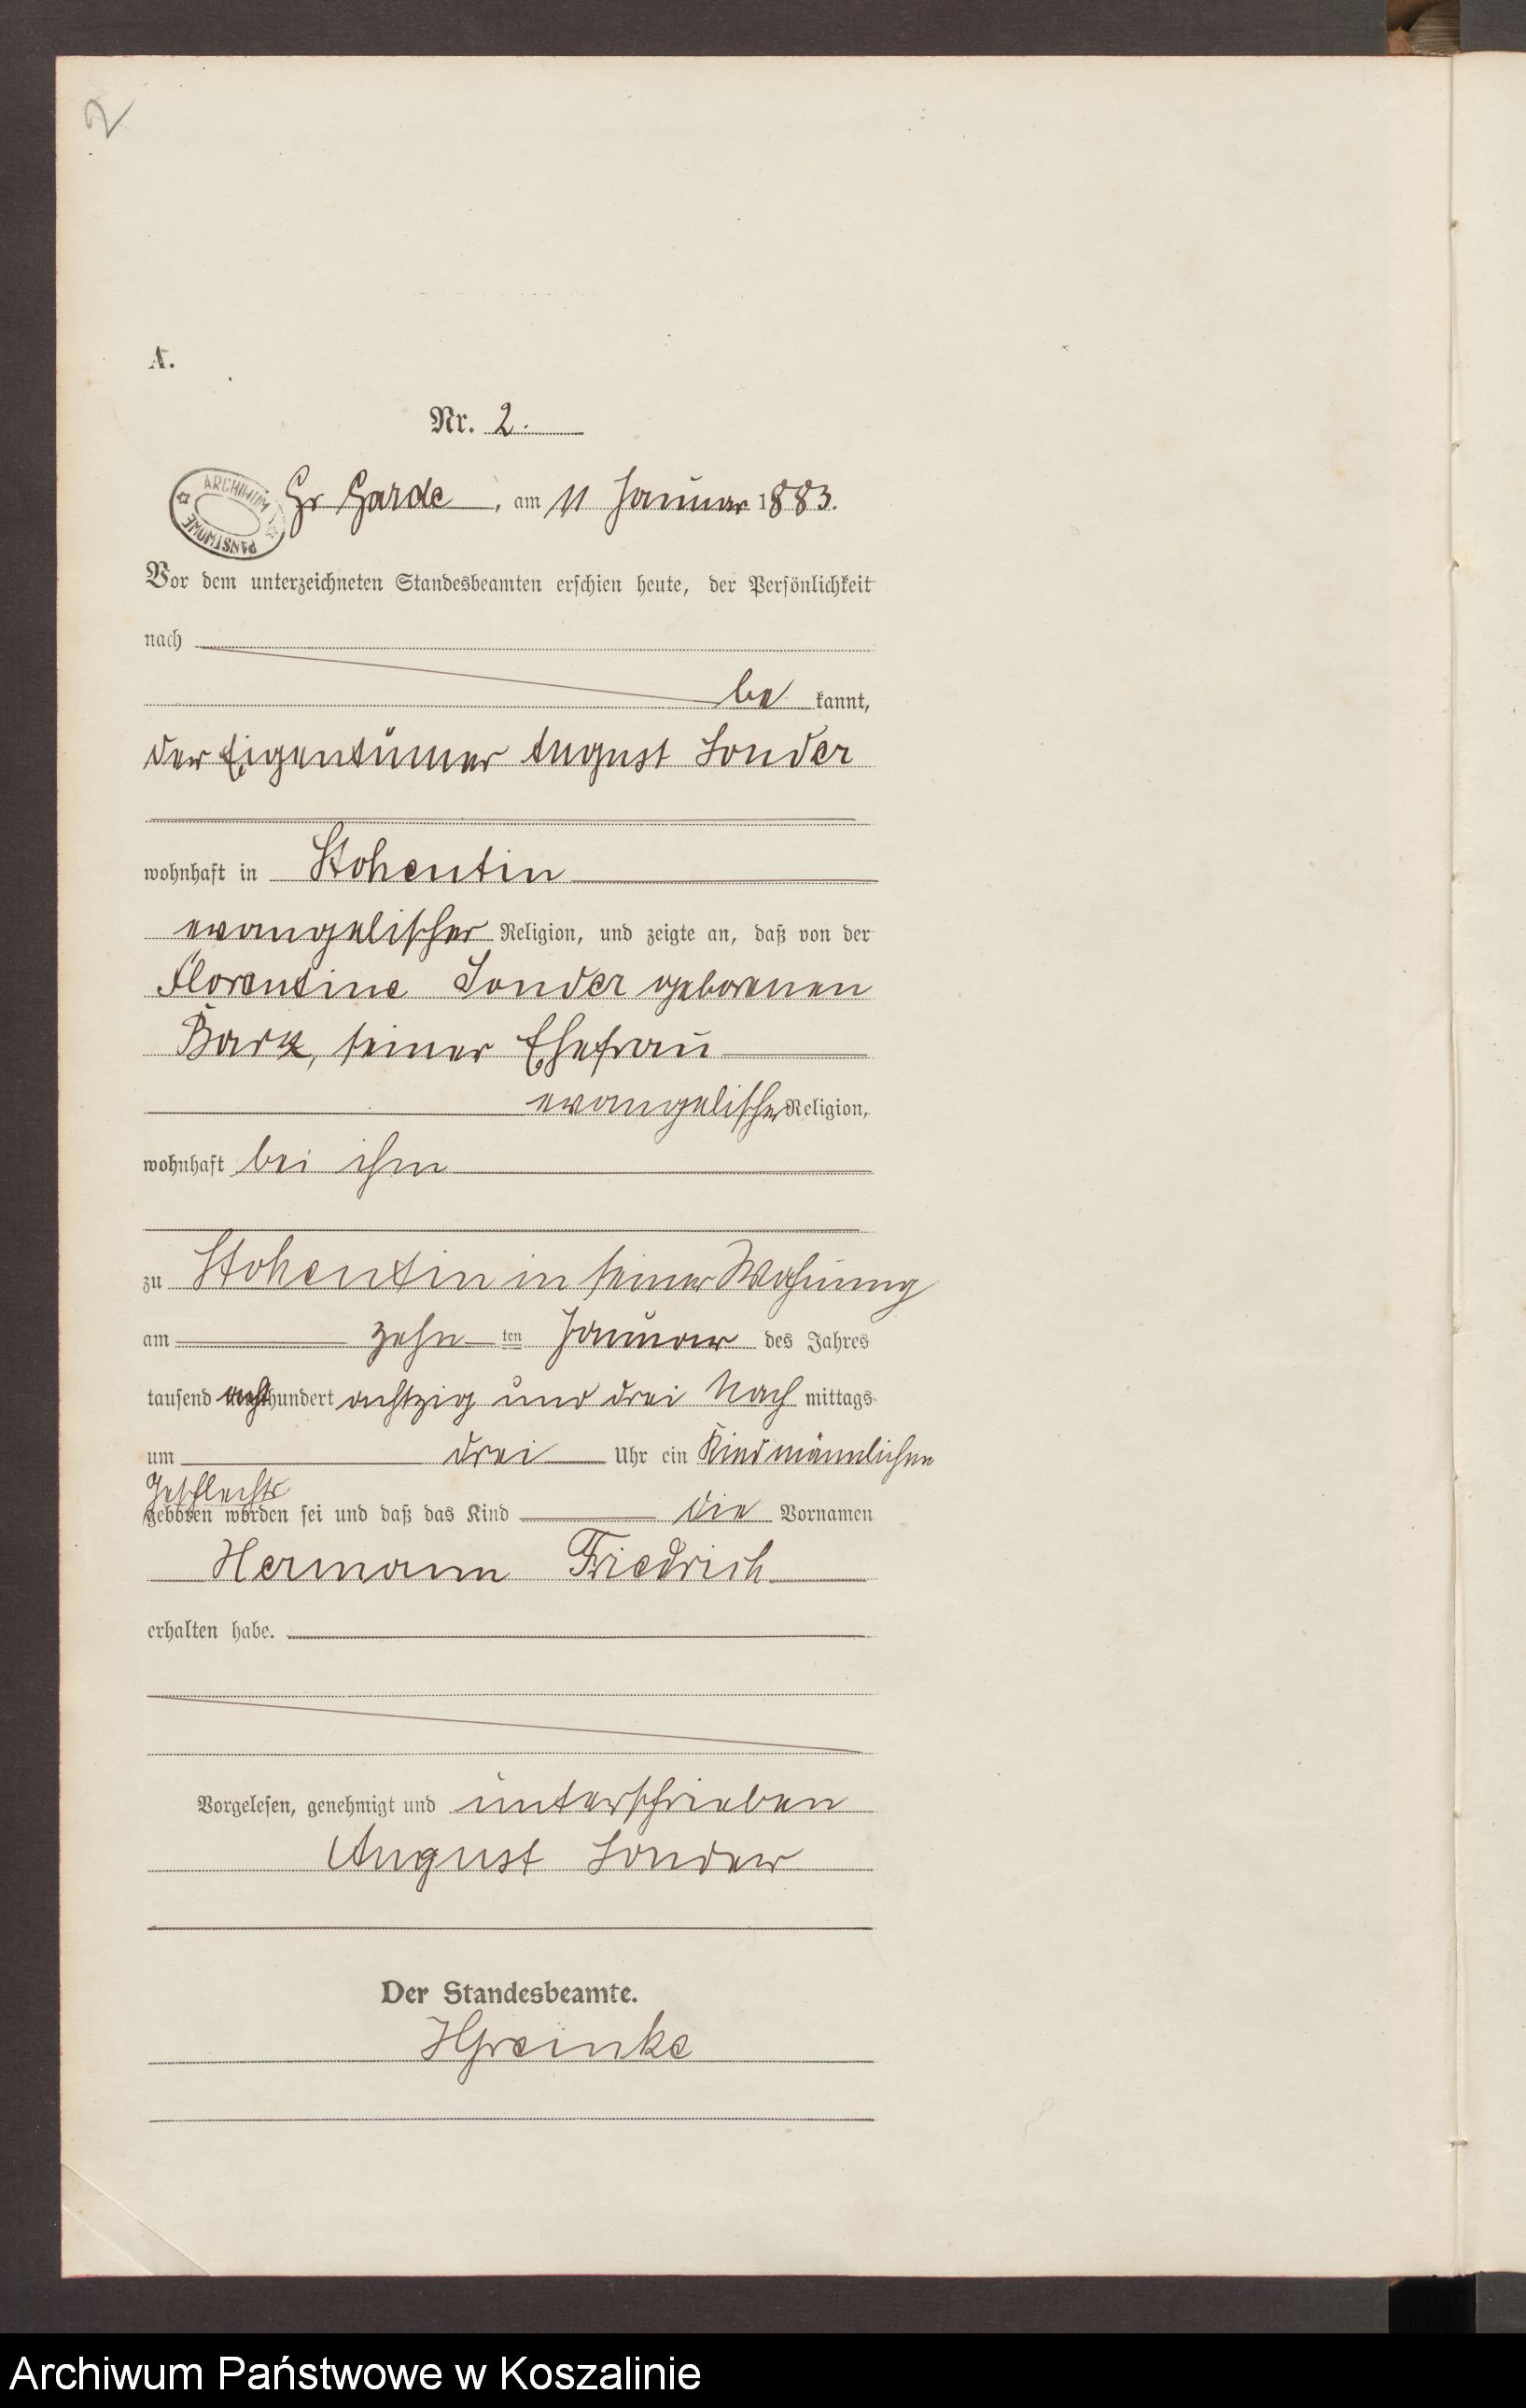 2
A.
Nr. 2.
ARCHIWUM PAŃSTWOWE
Gr Garde, am 11 Januar 1883.
Vor dem unterzeichneten Standesbeamten erschien heute, der Persönlichkeit
nach
be kannt,
der Eigentümer August Sonder
wohnhaft in Stohentin
evangelischer Religion, und zeigte an, daß von der
Florentine Sonder geborenen
Bark, seiner Ehefrau
evangelischer Religion,
wohnhaft bei ihm
zu Stohentin in seiner Wohnung
am zehn ten Januar des Jahres
tausend acht hundert achtzig und drei Nach mittags
um drei Uhr ein Kind männlichen
Geschlechts
geboren worden sei und daß das Kind die Vornamen
Hermann Friedrich
erhalten habe.
Vorgelesen, genehmigt und unterschrieben
August Sonder
Der Standesbeamte.
HGreinke
Archiwum Państwowe w Koszalinie